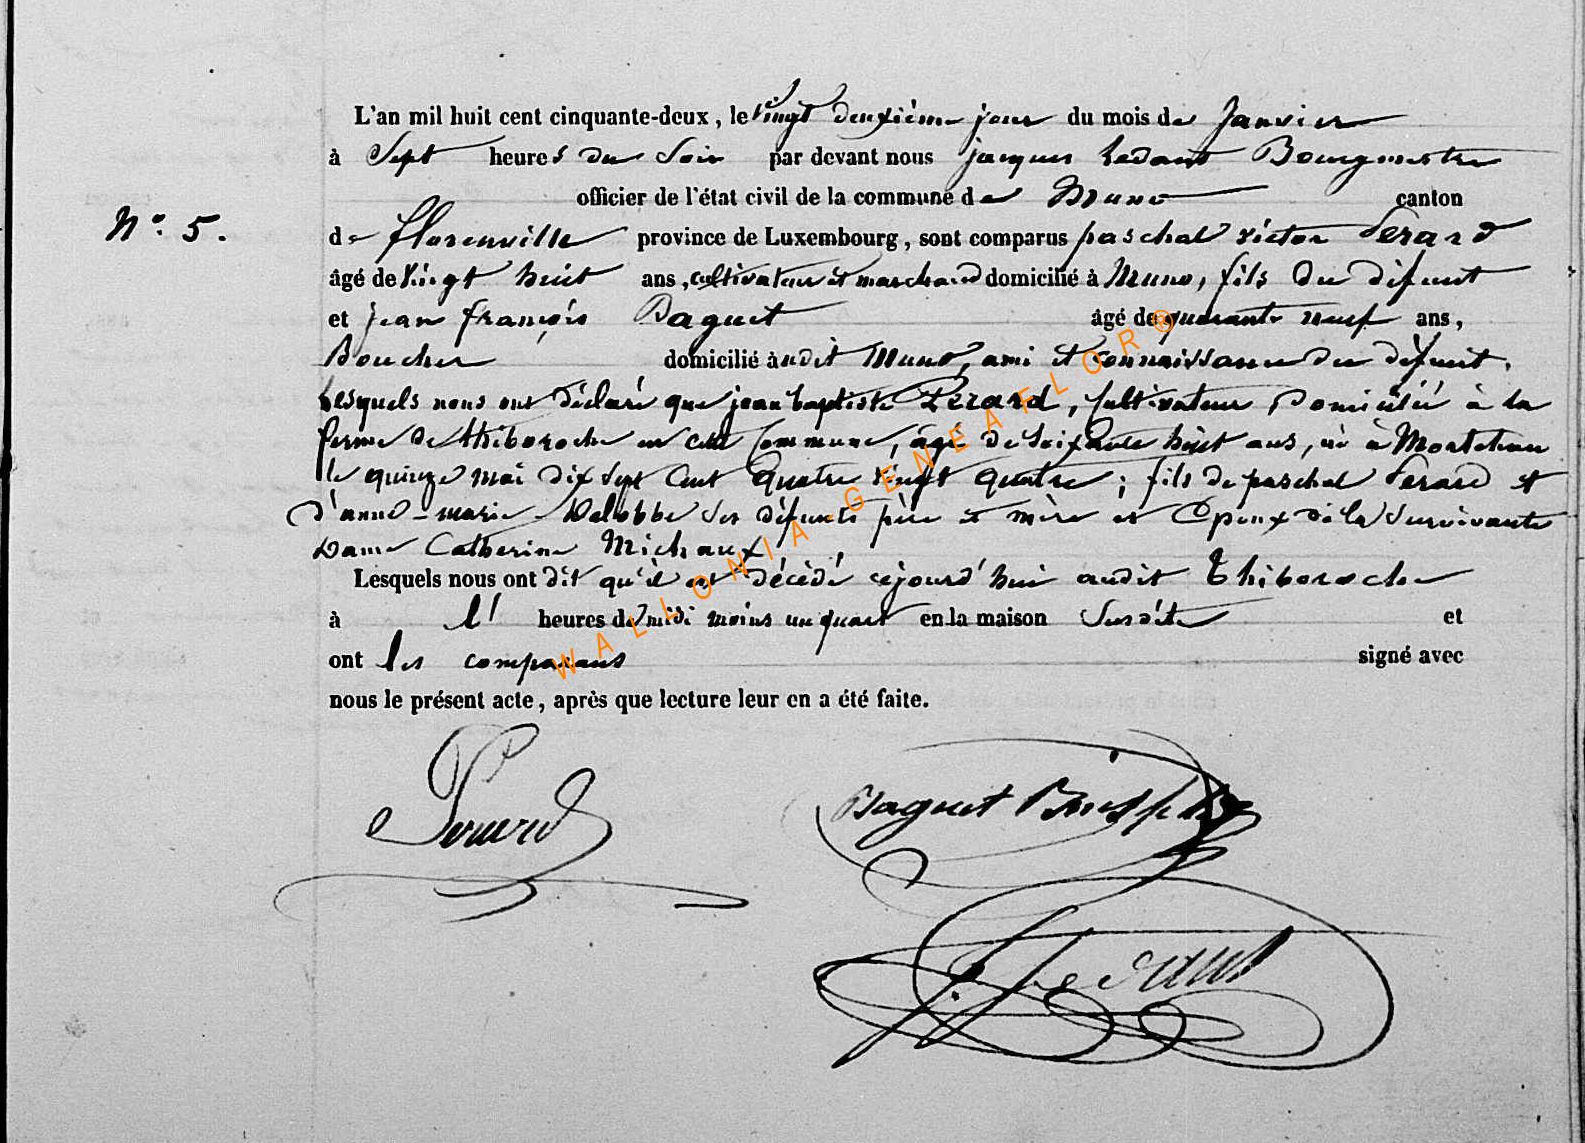 L'an mil huit cent cinquante-deux, le vingt deuxième jour du mois de Janvier
à Sept heures du Soir par devant nous jacques Ledant Bourgmestre
officier de l'état civil de la commune de Muno canton
N° 5.
de florenville province de Luxembourg, sont comparus paschal victor Perard
âgé de vingt huit ans, cultivateur et marchand domicilié à Muno, fils du défunt
et jean françois Baquet âgé de quarante neuf ans,
Boucher domicilié audit Muno, ami et connaissance du défunt.
Lesquels nous ont déclaré que jean baptiste Perard, Cultivateur Domicilié à la
ferme de thiboroche en cette Commune, âgé de Soixante huit ans, né à
le quinze mai dix sept Cent Quatre vingt Quatre ; fils de paschal Perard et
d'anne-marie ses défunts père et mère et Epoux de la Survivante
Dame Catherine Michaux
Lesquels nous ont dit qu'il est décédé cejourd'hui audit Thiboroche
à l' heures de midi moins un quart en la maison Susdite et
ont les comparans signé avec
nous le présent acte, après que lecture leur en a été faite.
Perard
Baquet
J. Ledant
WALLONIA-GENEAFLOR®